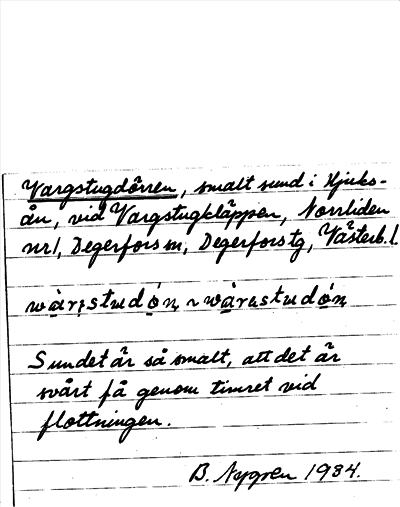 Vargstugdörren, smalt sund i Hjuks-
ån, vid Vargstugkläppen, Norrliden
nr1, Degerfors sn, Degerfors tg, Västerb. l.
Sundet är så smalt, att det är
svårt få genom timret vid
flottningen.
B. Nygren 1934.